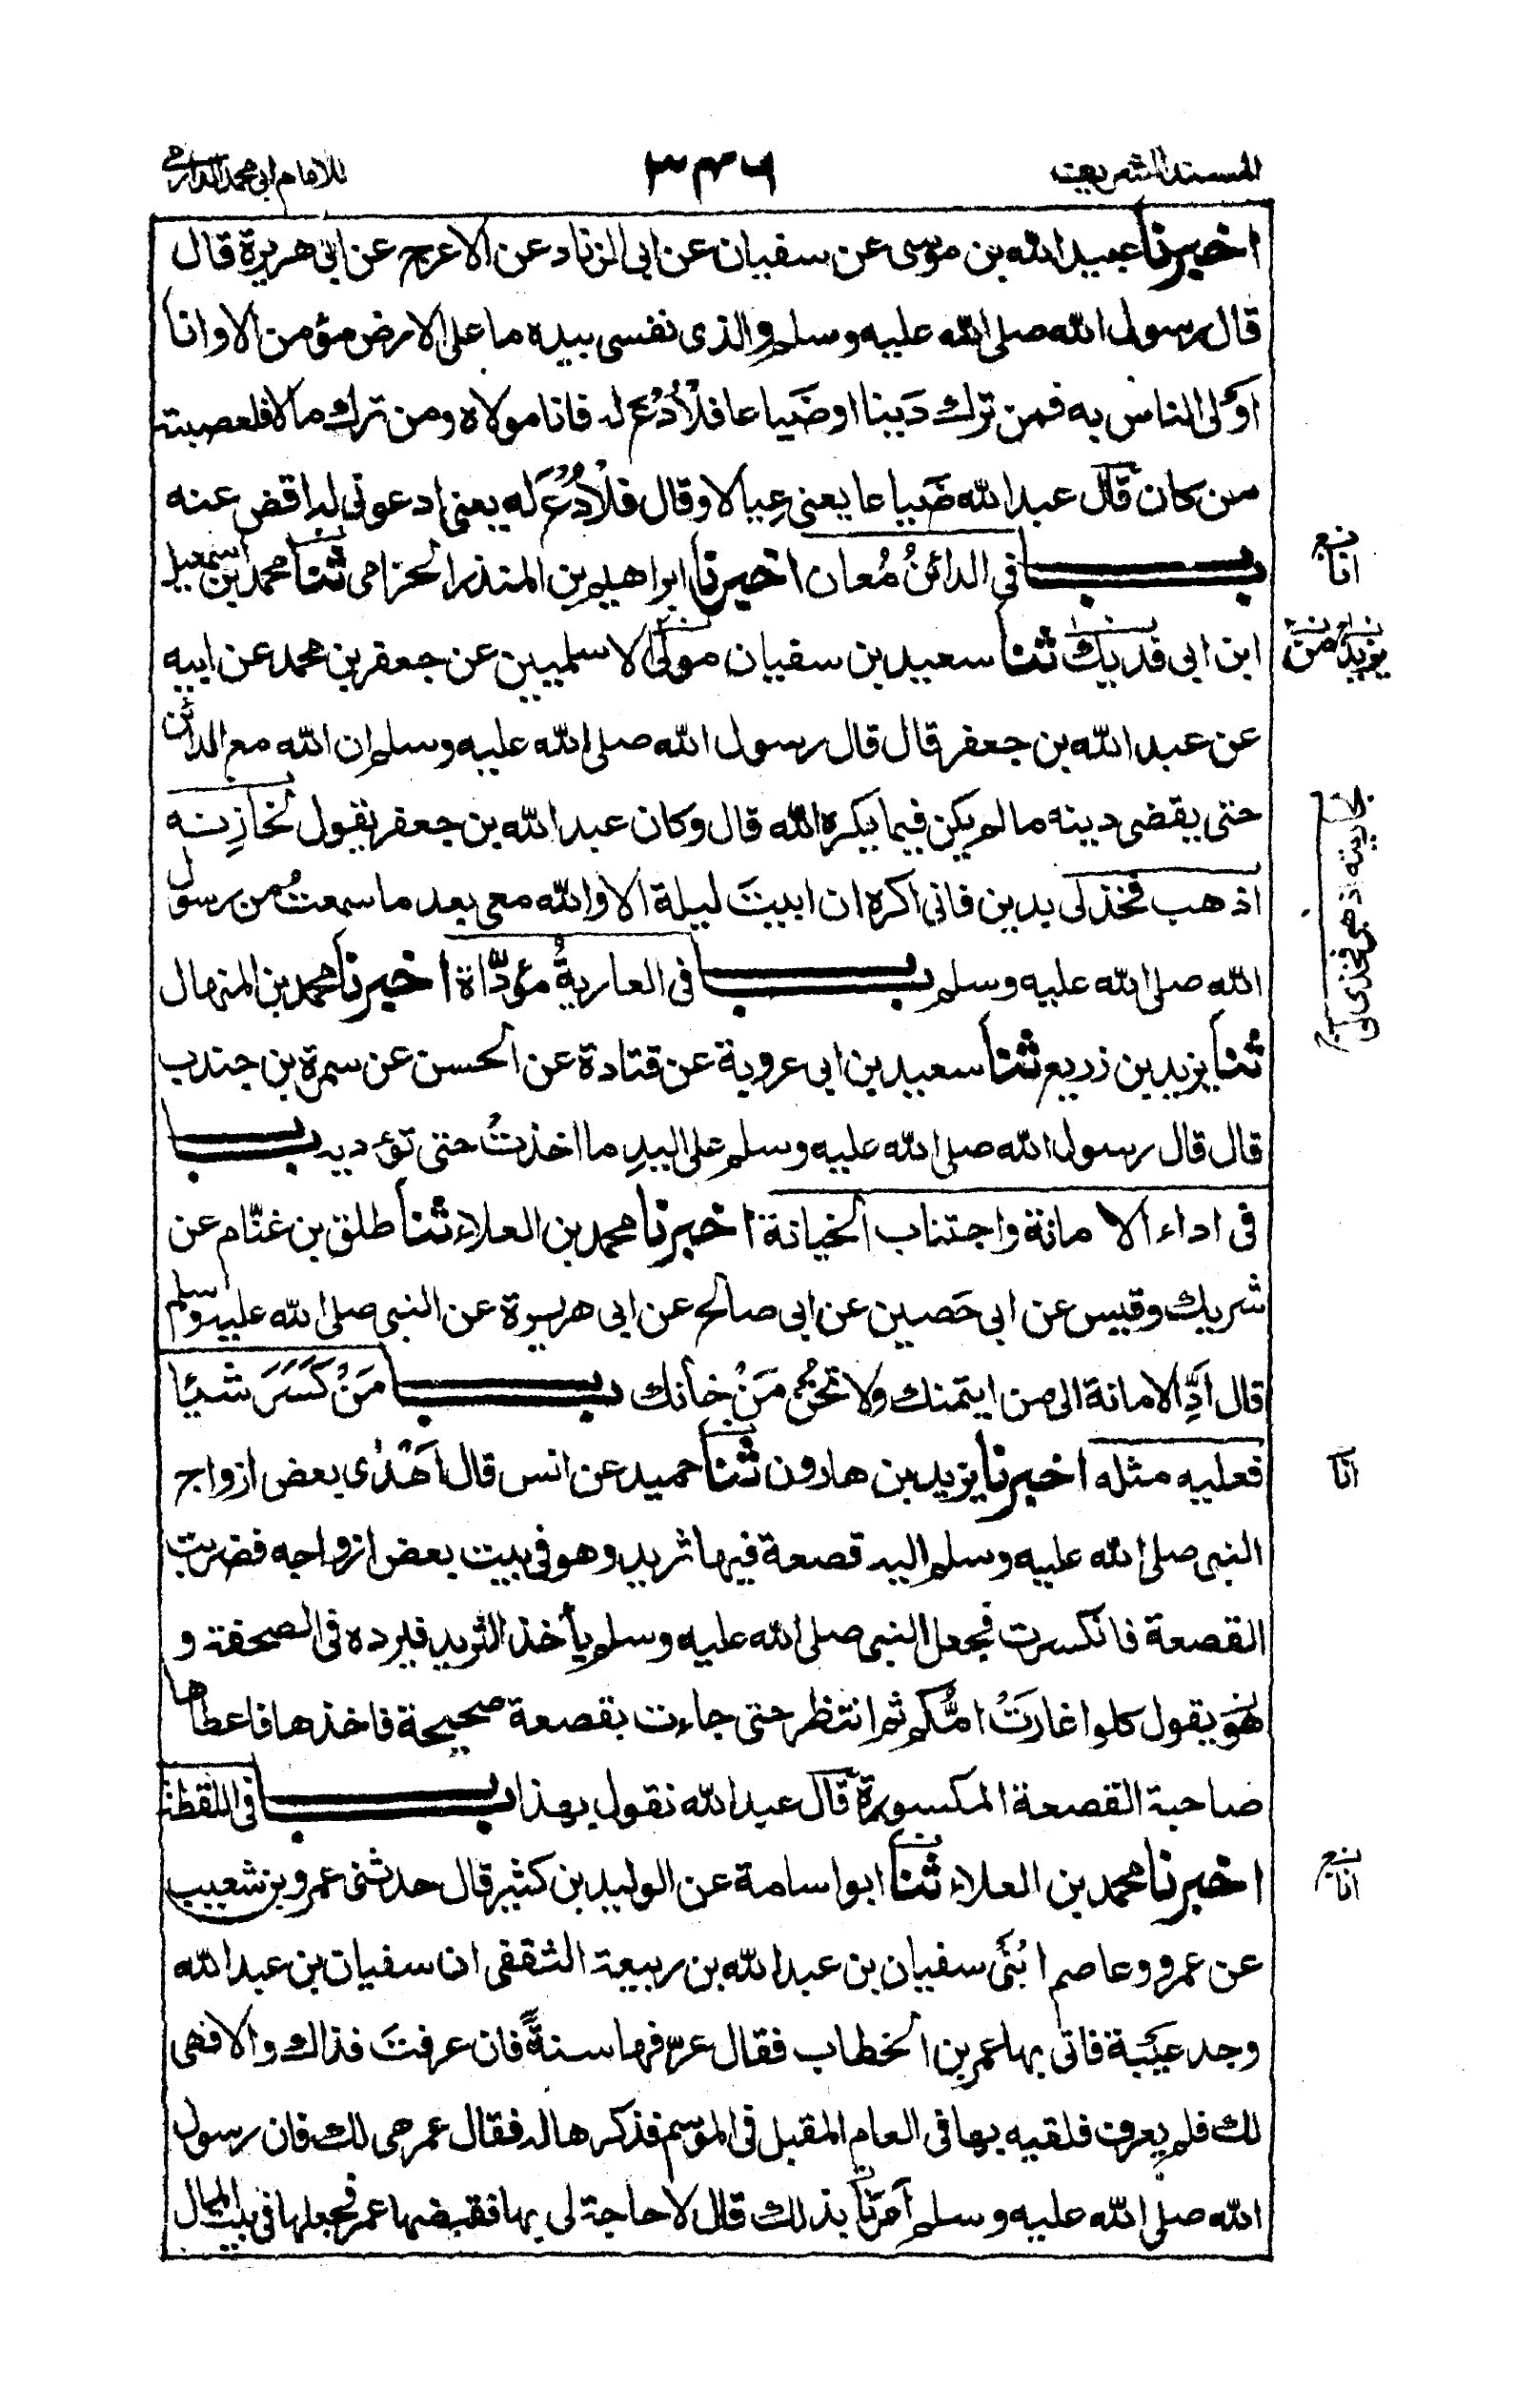 المسند الشريف
٣٤٦
للامام ابى محمد الدارمى
اخبرنا عبيد الله بن موسى عن سفيان عن ابى الزناد عن الاعرج عن ابى هريرة قال
قال رسول الله صلى الله عليه وسلم والذى نفسى بيده ما على الارض مؤمن الا وانا
اَوْلى الناس به فمن ترك دَينا او ضَياعا فلْاُدْعَ له فانا مولاه ومن ترك مالا فلعصبته
من كان قال عبد الله ضَياعا يعنى عِيالا وقال فلْاُدْعَ له يعنى ادعونى له اقض عنه
بــاب فى الدائنُ مُعان اخبرنا ابراهيم بن المنذر الحزامى ثنا محمد بن اسمعيل
ابن ابى فديك ثنا سعيد بن سفيان مولى الاسلميين عن جعفر بن محمد عن ابيه
عن عبد الله بن جعفر قال قال رسول الله صلى الله عليه وسلم ان الله مع الدائن
حتى يقضى دينه ما لم يكن فيما يكره الله قال وكان عبد الله بن جعفر يقول لخازِنه
اذهب فخذ لى بدين فانى اكره ان ابيتَ ليلة الا والله معى بعد ما سمعتُ من رسول
الله صلى الله عليه وسلم بــاب فى العاريةُ مؤدّاة اخبرنا محمد بن المنهال
ثنا يزيد بن زريع ثنا سعيد بن ابى عروبة عن قتادة عن الحسن عن سمرة بن جندب
قال قال رسول الله صلى الله عليه وسلم على اليدِ ما اخذتْ حتى تؤديه بــاب
فى اداء الامانة واجتناب الخيانة اخبرنا محمد بن العلاء ثنا طلق بن غنّام عن
شريك وقيس عن ابى حَصين عن ابى صالح عن ابى هريرة عن النبى صلى الله عليه وسلم
قال اَدِّ الامانة الى من ايتمنك ولا تخُنْ مَنْ خانك بــاب مَنْ كَسَرَ شيئا
فعليه مثله اخبرنا يزيد بن هارون ثنا حميد عن انس قال اَهْدٰى بعض ازواج
النبى صلى الله عليه وسلم اليه قصعة فيها ثريد وهو فى بيت بعض ازواجه فضربت
القصعة فانكسرت فجعل النبى صلى الله عليه وسلم ياخذ الثريد فيرده فى الصحفة و
هُوَ يقول كلوا غارَتْ امُّكم ثم انتظر حتى جاءت بقصعة صحيحة فاخذها فاعطاها
صاحبة القصعة المكسورة قال عبد الله نقول بهذا بــاب فى اللقطة
اخبرنا محمد بن العلاء ثنا ابو اسامة عن الوليد بن كثير قال حدثنى عمرو بن شعيب
عن عمرو وعاصم ابْنَىْ سفيان بن عبد الله بن ربيعة الثقفى ان سفيان بن عبد الله
وجد عَيْبة فاتى بها عمر بن الخطاب فقال عرّفها سنةً فان عرفتَ فذاك والا فهى
لك فلم يعرف فلقيه بها فى العام المقبل فى الموسم فذكرها له فقال عمر هى لك فان رسول
الله صلى الله عليه وسلم اَمرَنا بذلك قال لا حاجة لى بها فقبضها عمر فجعلها فى بيت المال
انا
يزيد من
اذهبى فخذى لى
انا
انا